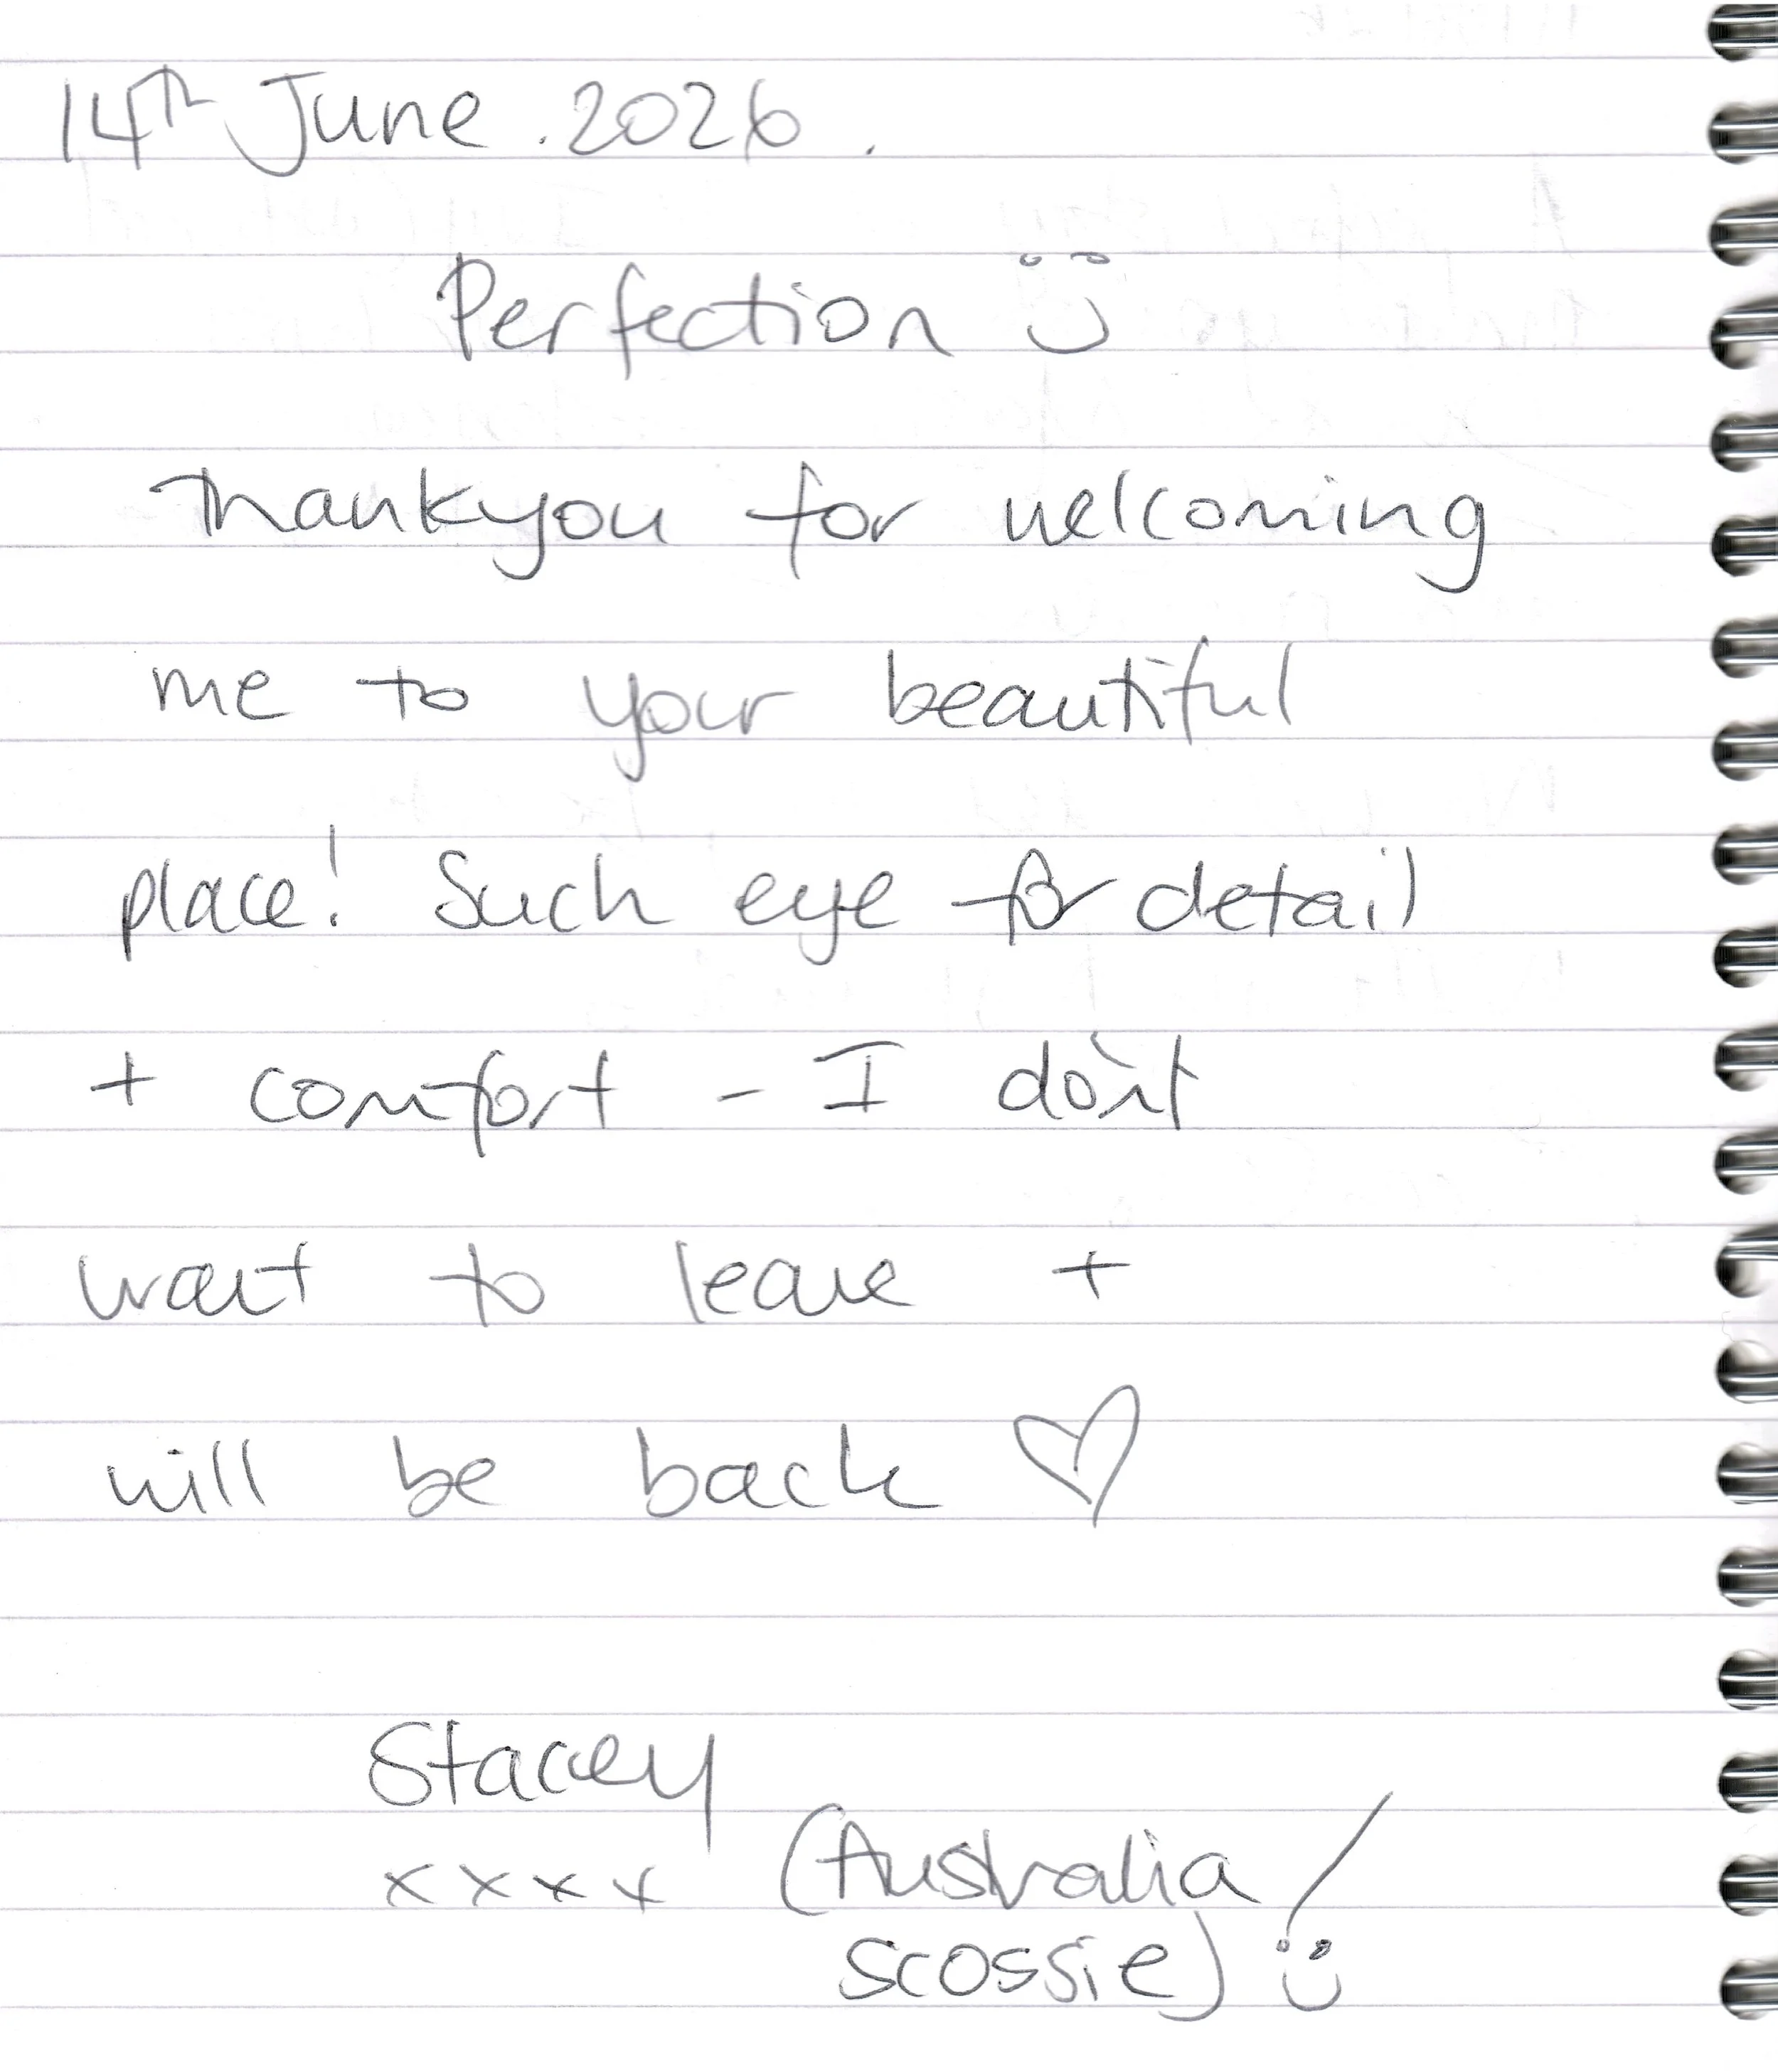 14th June .2026.
Perfection
Thankyou for welcoming
me to your beautiful
place! Such eye for detail
+ comfort - I don't
want to leave +
will be back ♡
Stacey
xxxx (Australia /
scossie)